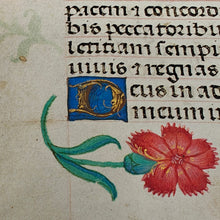 pacem et concord
bis peccatoribu
letitiam sempi
viuis et regnas
Deus in ad
meum in